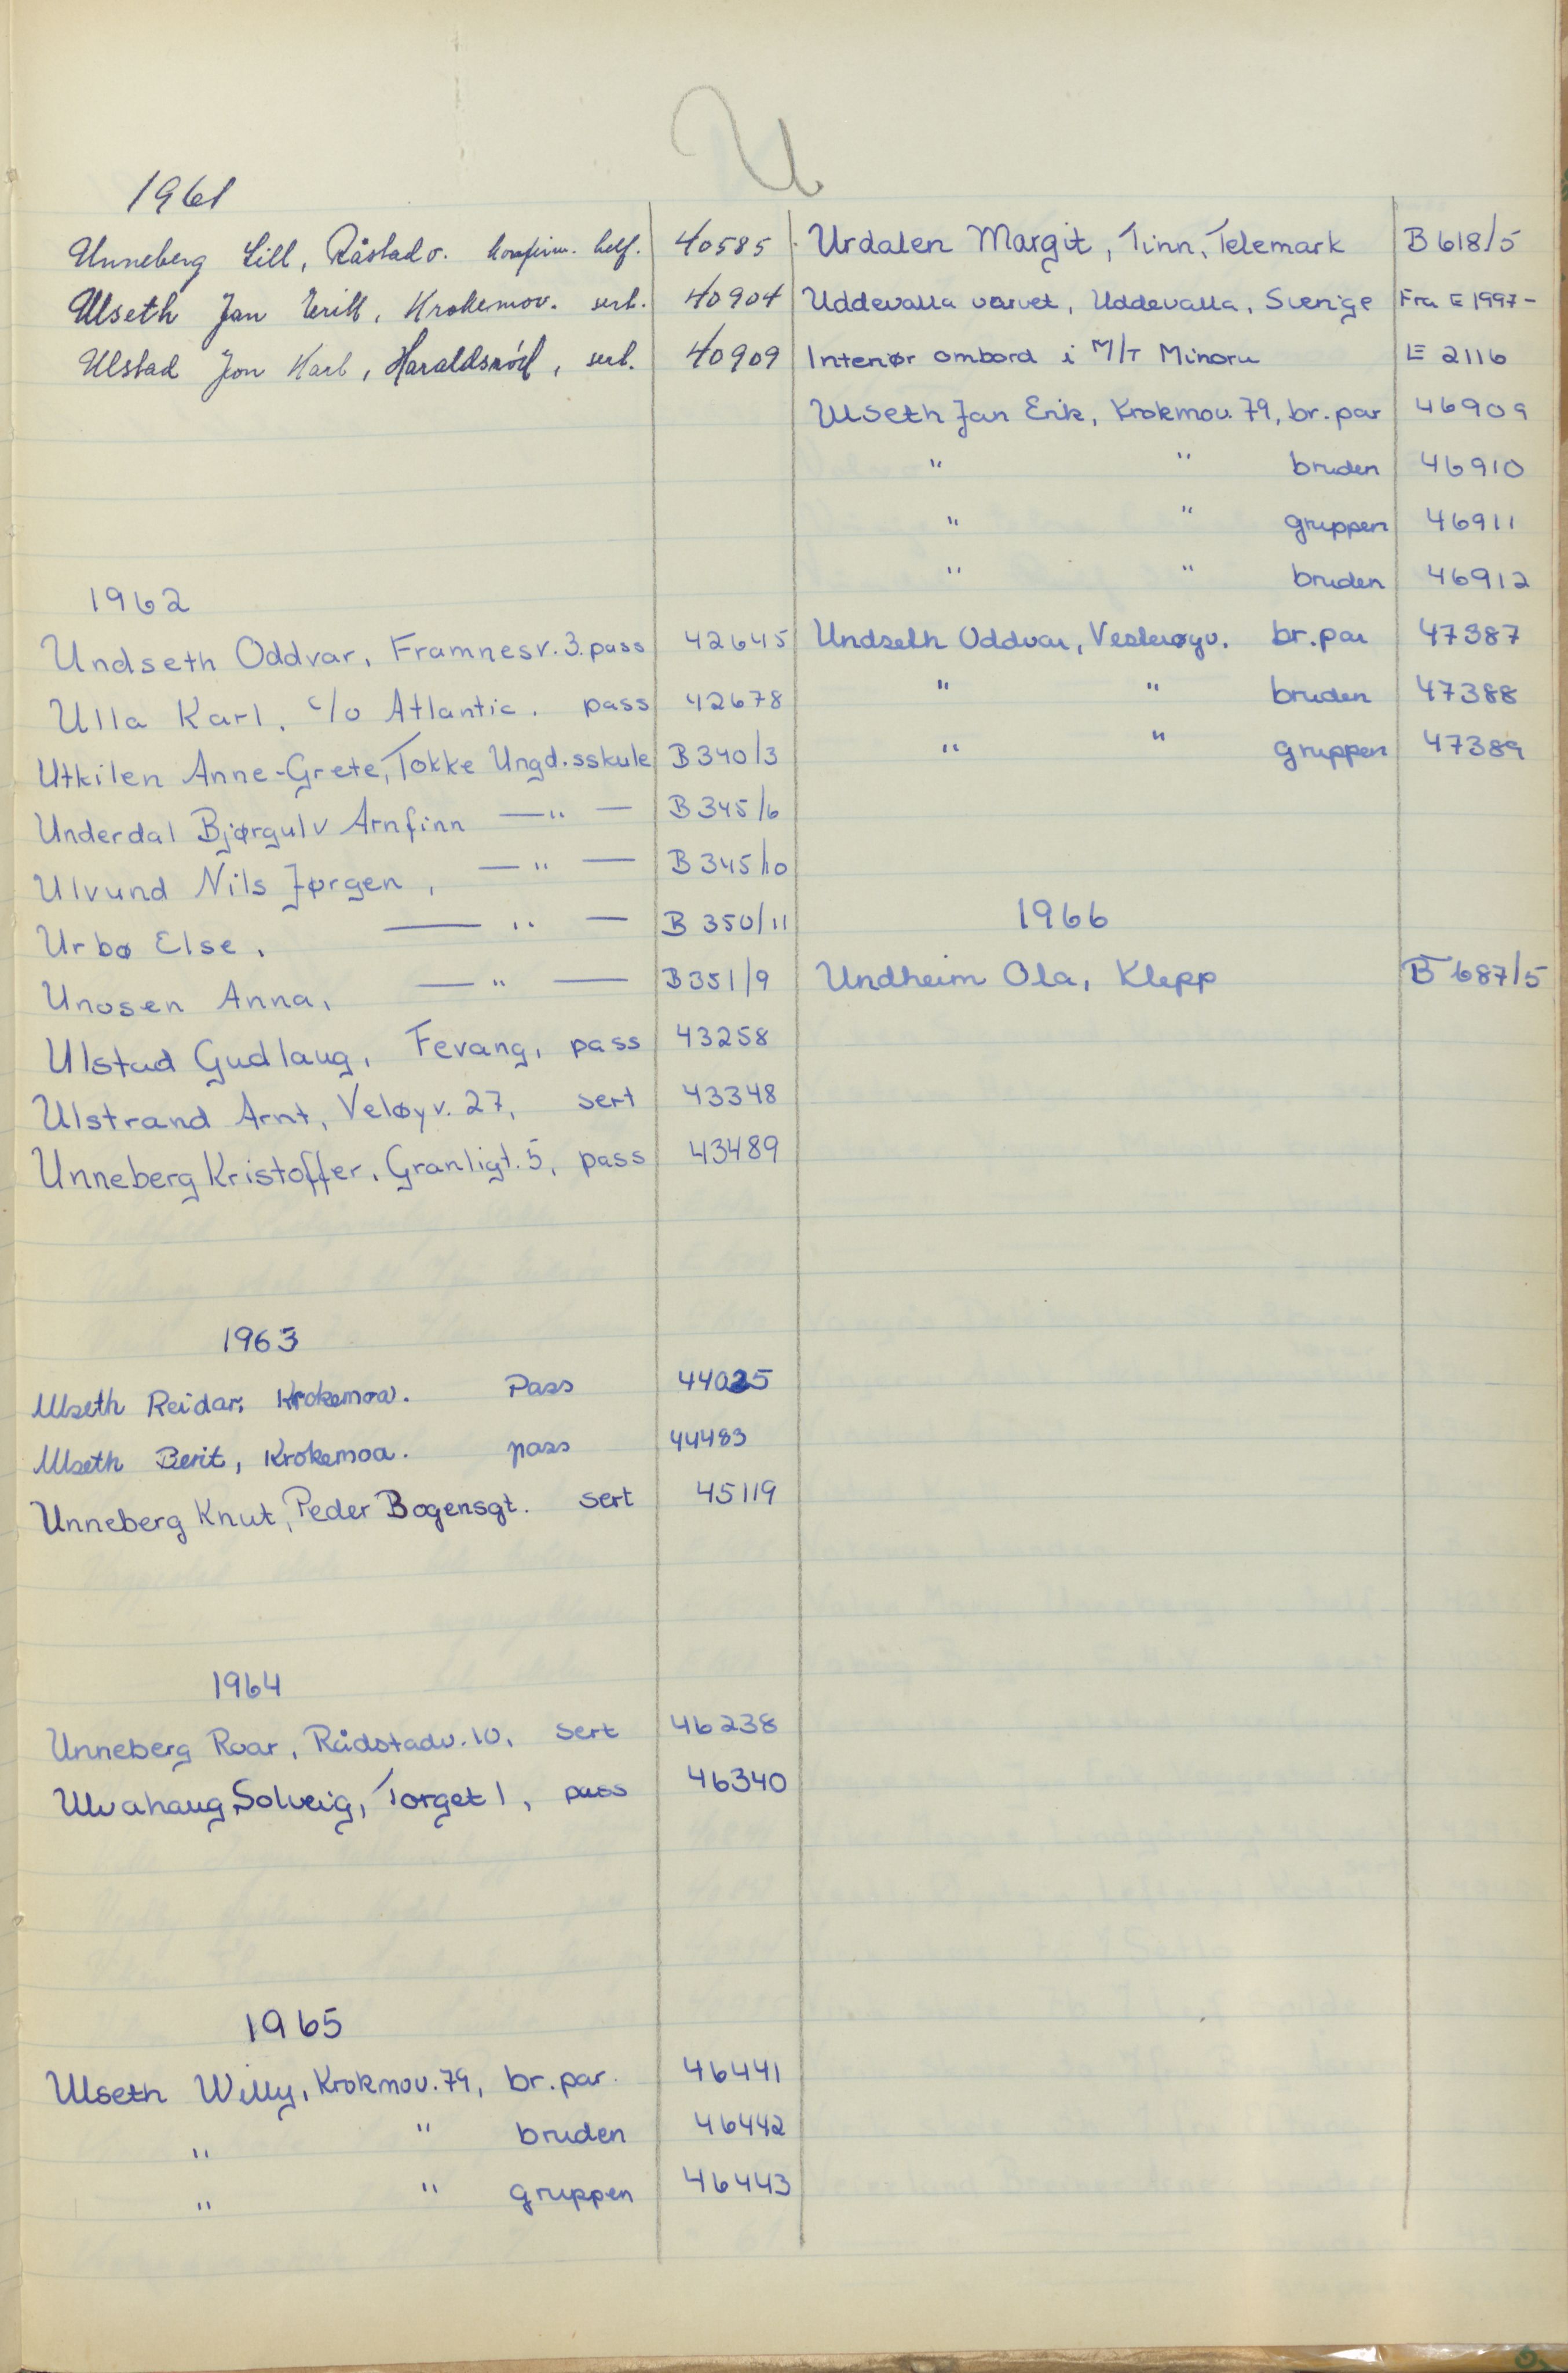 U
1961
Unneberg Lill, Råstadv. konfirm. helf. 40585
Ulseth Jan Erik, Krokemov. sert. 40904
Ulstad Jon Karl, Haraldsrød, sert. 40909
1962
Undseth Oddvar, Framnesv. 3. pass 42645
Ulla Karl, c/o Atlantic. pass 42678
Utkilen Anne-Grete, Tokke Ungd.sskule B340/3
Underdal Bjørgulv Arnfinn —"— B345/6
Ulvund Nils Jørgen, —"— B345/10
Urbø Else, —"— B 350/11
Unosen Anna, —"— B351/9
Ulstad Gudlaug, Fevang, pass 43258
Ulstrand Arnt, Veløyv. 27, sert 43348
Unneberg Kristoffer, Granligt. 5, pass 43489
1963
Ulseth Reidar, Krokemoa. Pass 44025
Ulseth Berit, Krokemoa. pass 44483
Unneberg Knut, Peder Bogensgt. sert 45119
1964
Unneberg Roar, Rådstadv. 10, sert 46238
Ulvahaug Solveig, Torget 1, pass 46340
1965
Ulseth Willy, Krokmov. 79, br. par. 46441
" " bruden 46442
" " gruppen 46443
Urdalen Margit, Tinn, Telemark B618/5
Uddevalla varvet, Uddevalla, Sverige Fra E 1997-
Interiør ombord i M/T Minoru E 2116
Ulseth Jan Erik, Krokmov. 79, br. par 46909
" " bruden 46910
" " gruppen 46911
" " bruden 46912
Undseth Oddvar, Vesterøyv. br. par 47387
" " bruden 47388
" " gruppen 47389
1966
Undheim Ola, Klepp B 687/5